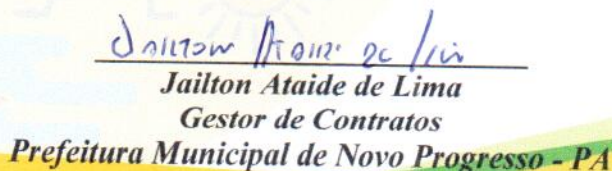 Jailton Ataide de Lima
Jailton Ataide de Lima
Gestor de Contratos
Prefeitura Municipal de Novo Progresso - PA